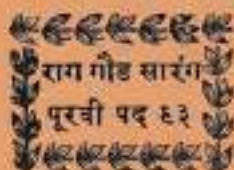 राग गौड सारंग
पूरवी पद ६३